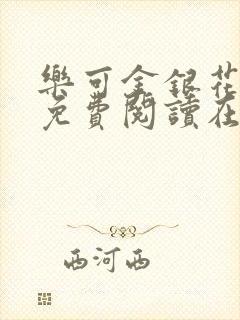 樂可金銀花
免費閱讀在
西河西